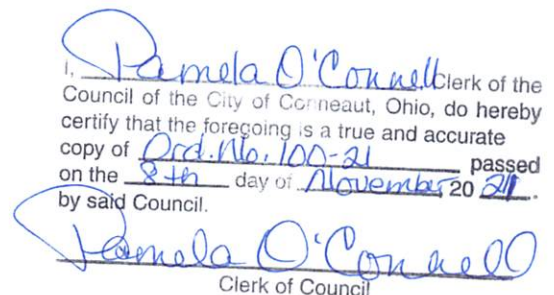 I, Pamela O'Connell Clerk of the
Council of the City of Conneaut, Ohio, do hereby
certify that the foregoing is a true and accurate
copy of Ord. No. 100-21 passed
on the 8th day of November 20 21.
by said Council.
Pamela O'Connell
Clerk of Council